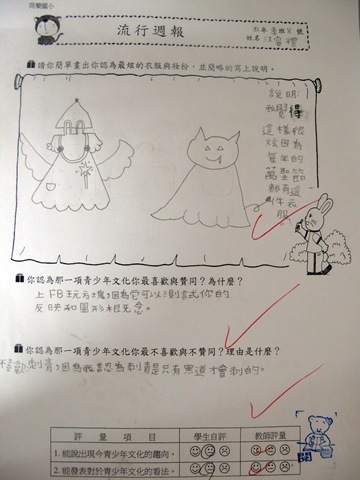 同樂國小
流行週報
年 班 號
姓名
請你簡單畫出你認為最炫的衣服與妝扮，並簡略的寫上說明。
說明:
我覺得
這樣很
炫因為
每年的
萬聖節
都有這
件衣
服
你認為那一項青少年文化你最喜歡與贊同？為什麼？
上FB玩方塊,因為它可以測試你的
反映和圖形概念。
你認為那一項青少年文化你最不喜歡與不贊同？理由是什麼？
喜歡刺青,因為我認為刺青是只有黑道才會刺的。
評量項目 學生自評 教師評量
1. 能說出現今青少年文化的趨向。
2. 能發表對於青少年文化的看法。